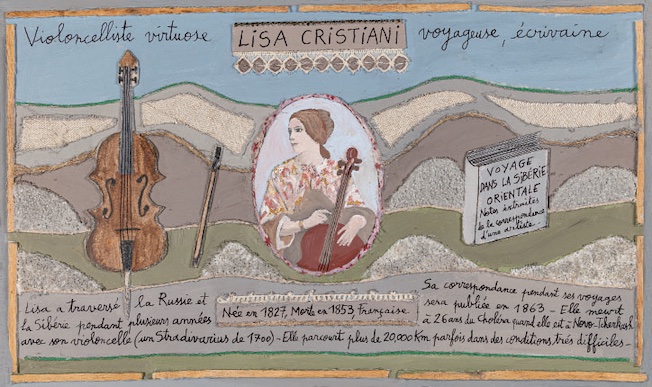 Violoncelliste virtuose
LiSA CRiSTiANi
voyageuse, écrivaine
VOYAGE
DANS LA SiBÉRiE
ORIENTALE
Notes extraites
de la correspondance
d'une artiste...
Lisa a traversé la Russie et
la Sibérie pendant plusieurs années
Née en 1827, Morte en 1853, Française.
Sa correspondance pendant ses voyages
sera publiée en 1863 - Elle meurt
à 26 ans du Choléra quand elle est à Novo-Tcherkask
avec son violoncelle (un Stradivarius de 1700) - Elle parcourt plus de 20000 Km parfois dans des conditions très difficiles -